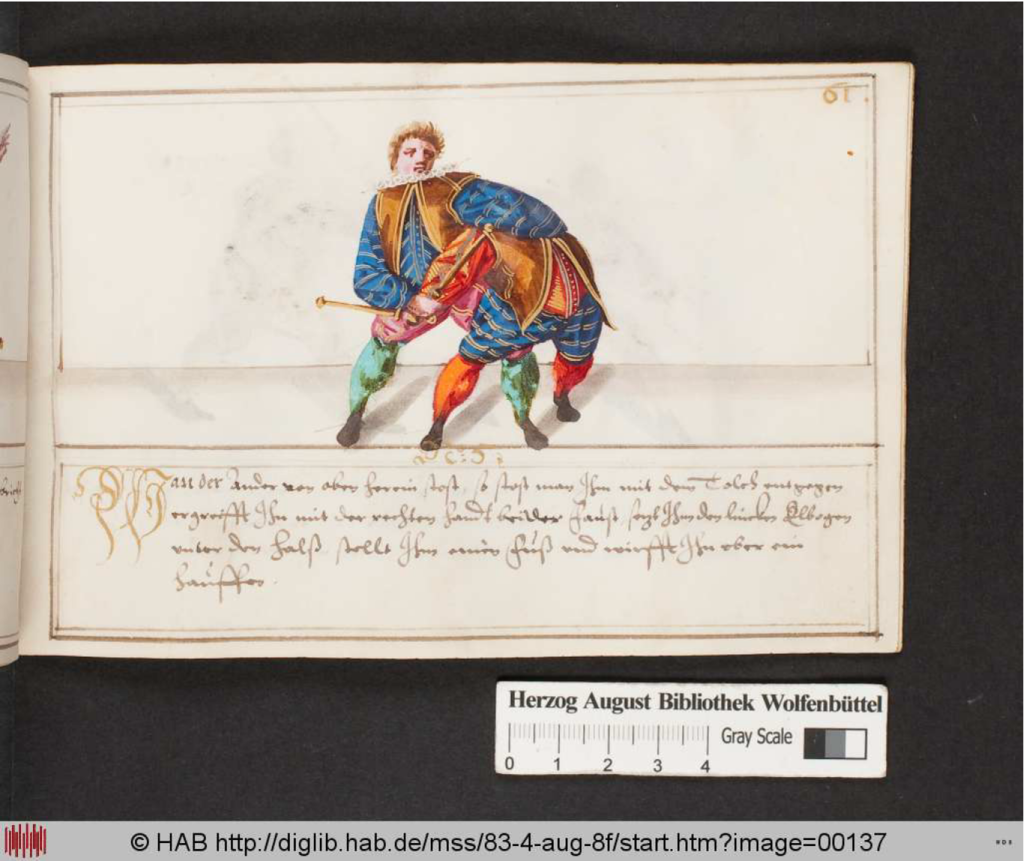 61.
Wan der Ander von oben herein stost, so stost man Ihm mit dem Tolch entgegen
ergreifft Ihn mit der rechten handt bei der Faust, sezt Ihm den lincken Elbogen
unter den Halß, stellt Ihm einen Fuß und wirfft Ihn uber ein
hauffen.
Herzog August Bibliothek Wolfenbüttel
Gray Scale
0 1 2 3 4
© HAB http://diglib.hab.de/mss/83-4-aug-8f/start.htm?image=00137